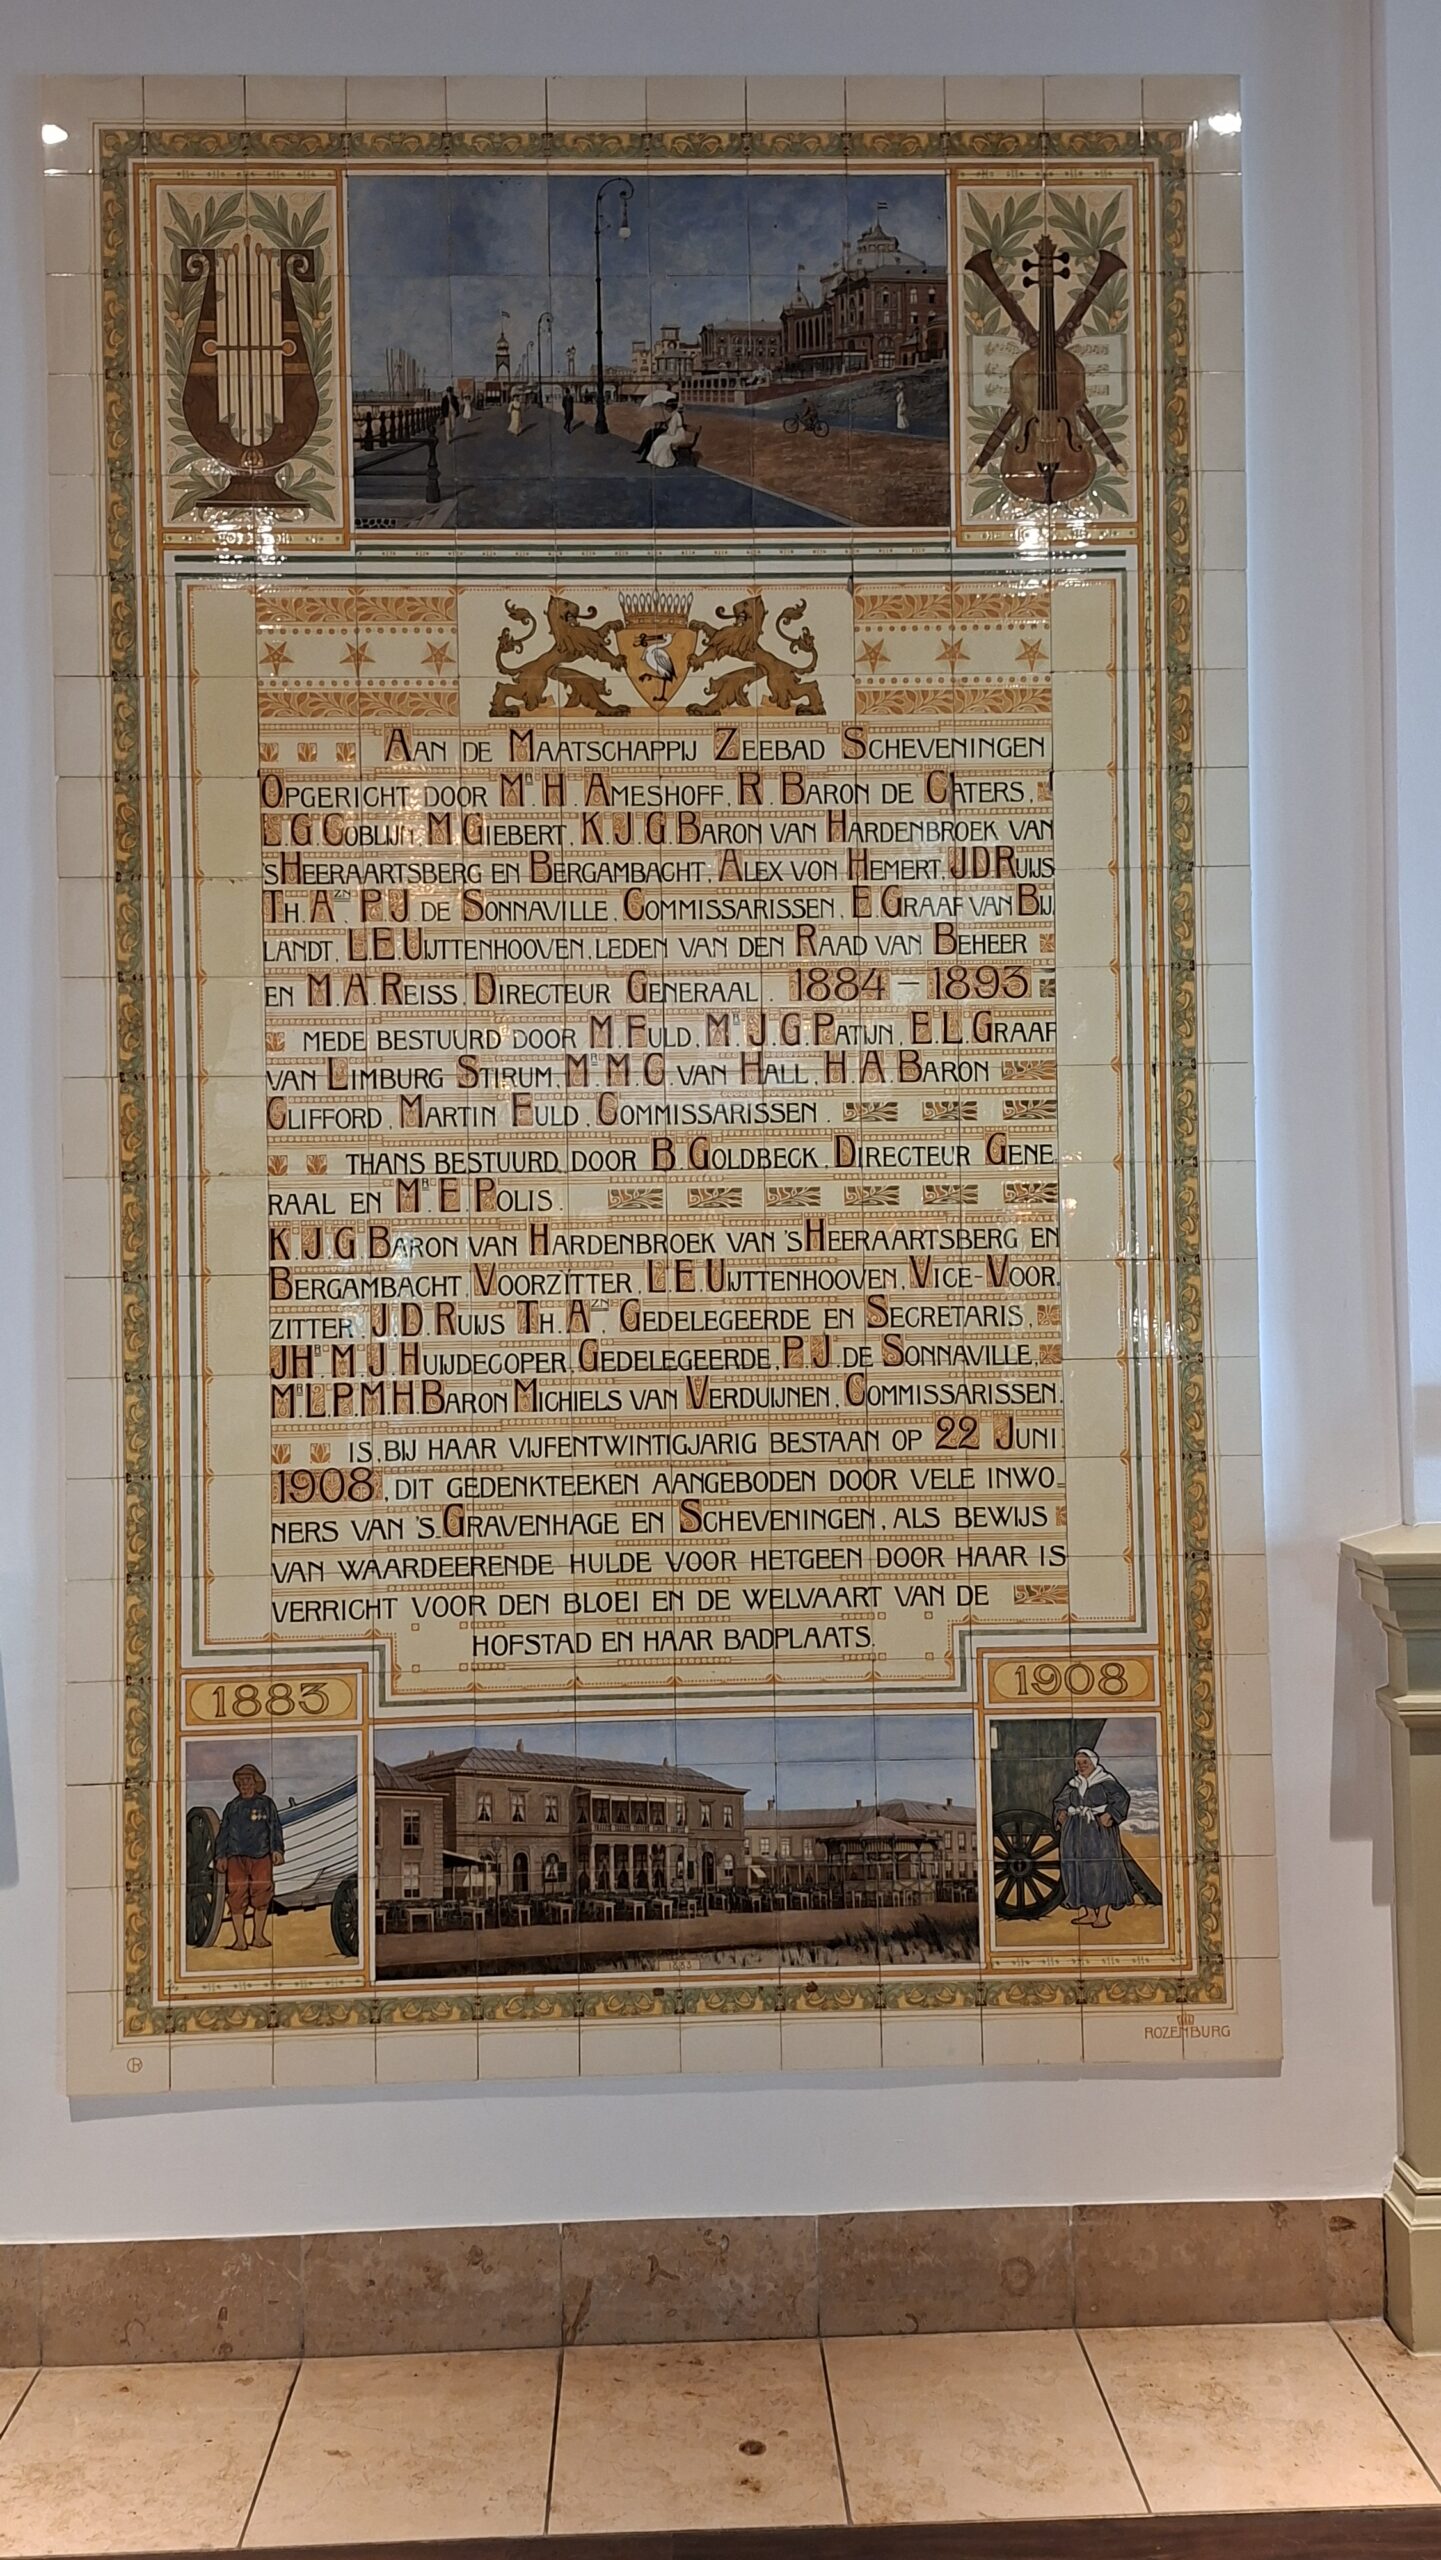 AAN DE MAATSCHAPPIJ ZEEBAD SCHEVENINGEN
OPGERICHT DOOR MR. H. AMESHOFF, R. BARON DE CATERS,
L.G. COBLIJN, M. GIEBERT, K.J.G. BARON VAN HARDENBROEK VAN
'SHEERAARTSBERG EN BERGAMBACHT, ALEX VON HEMERT, J.D. RUIJS
TH. AZN. P.J. DE SONNAVILLE, COMMISSARISSEN, E. GRAAF VAN BIJ
LANDT, L.E. UIJTTENHOOVEN, LEDEN VAN DEN RAAD VAN BEHEER
EN M.A. REISS, DIRECTEUR GENERAAL. 1884 – 1893
MEDE BESTUURD DOOR M. FULD, MR. J.G. PATIJN, E.L. GRAAF
VAN LIMBURG STIRUM, MR. M.C. VAN HALL, H.A. BARON
CLIFFORD, MARTIN FULD, COMMISSARISSEN.
THANS BESTUURD DOOR B. GOLDBECK, DIRECTEUR GENE
RAAL EN MR. E. POLIS.
K.J.G. BARON VAN HARDENBROEK VAN 'SHEERAARTSBERG EN
BERGAMBACHT, VOORZITTER, L.E. UIJTTENHOOVEN, VICE-VOOR.
ZITTER, J.D. RUIJS TH. AZN, GEDELEGEERDE EN SECRETARIS,
JHR. M.J. HUIJDECOPER, GEDELEGEERDE, P.J. DE SONNAVILLE,
MR. L.P.M.H. BARON MICHIELS VAN VERDUIJNEN, COMMISSARISSEN.
IS, BIJ HAAR VIJFENTWINTIGJARIG BESTAAN OP 22 JUNI
1908, DIT GEDENKTEEKEN AANGEBODEN DOOR VELE INWO-
NERS VAN 'S-GRAVENHAGE EN SCHEVENINGEN, ALS BEWIJS
VAN WAARDEERENDE HULDE VOOR HETGEEN DOOR HAAR IS
VERRICHT VOOR DEN BLOEI EN DE WELVAART VAN DE
HOFSTAD EN HAAR BADPLAATS.
1883
1908
1883
ROZENBURG